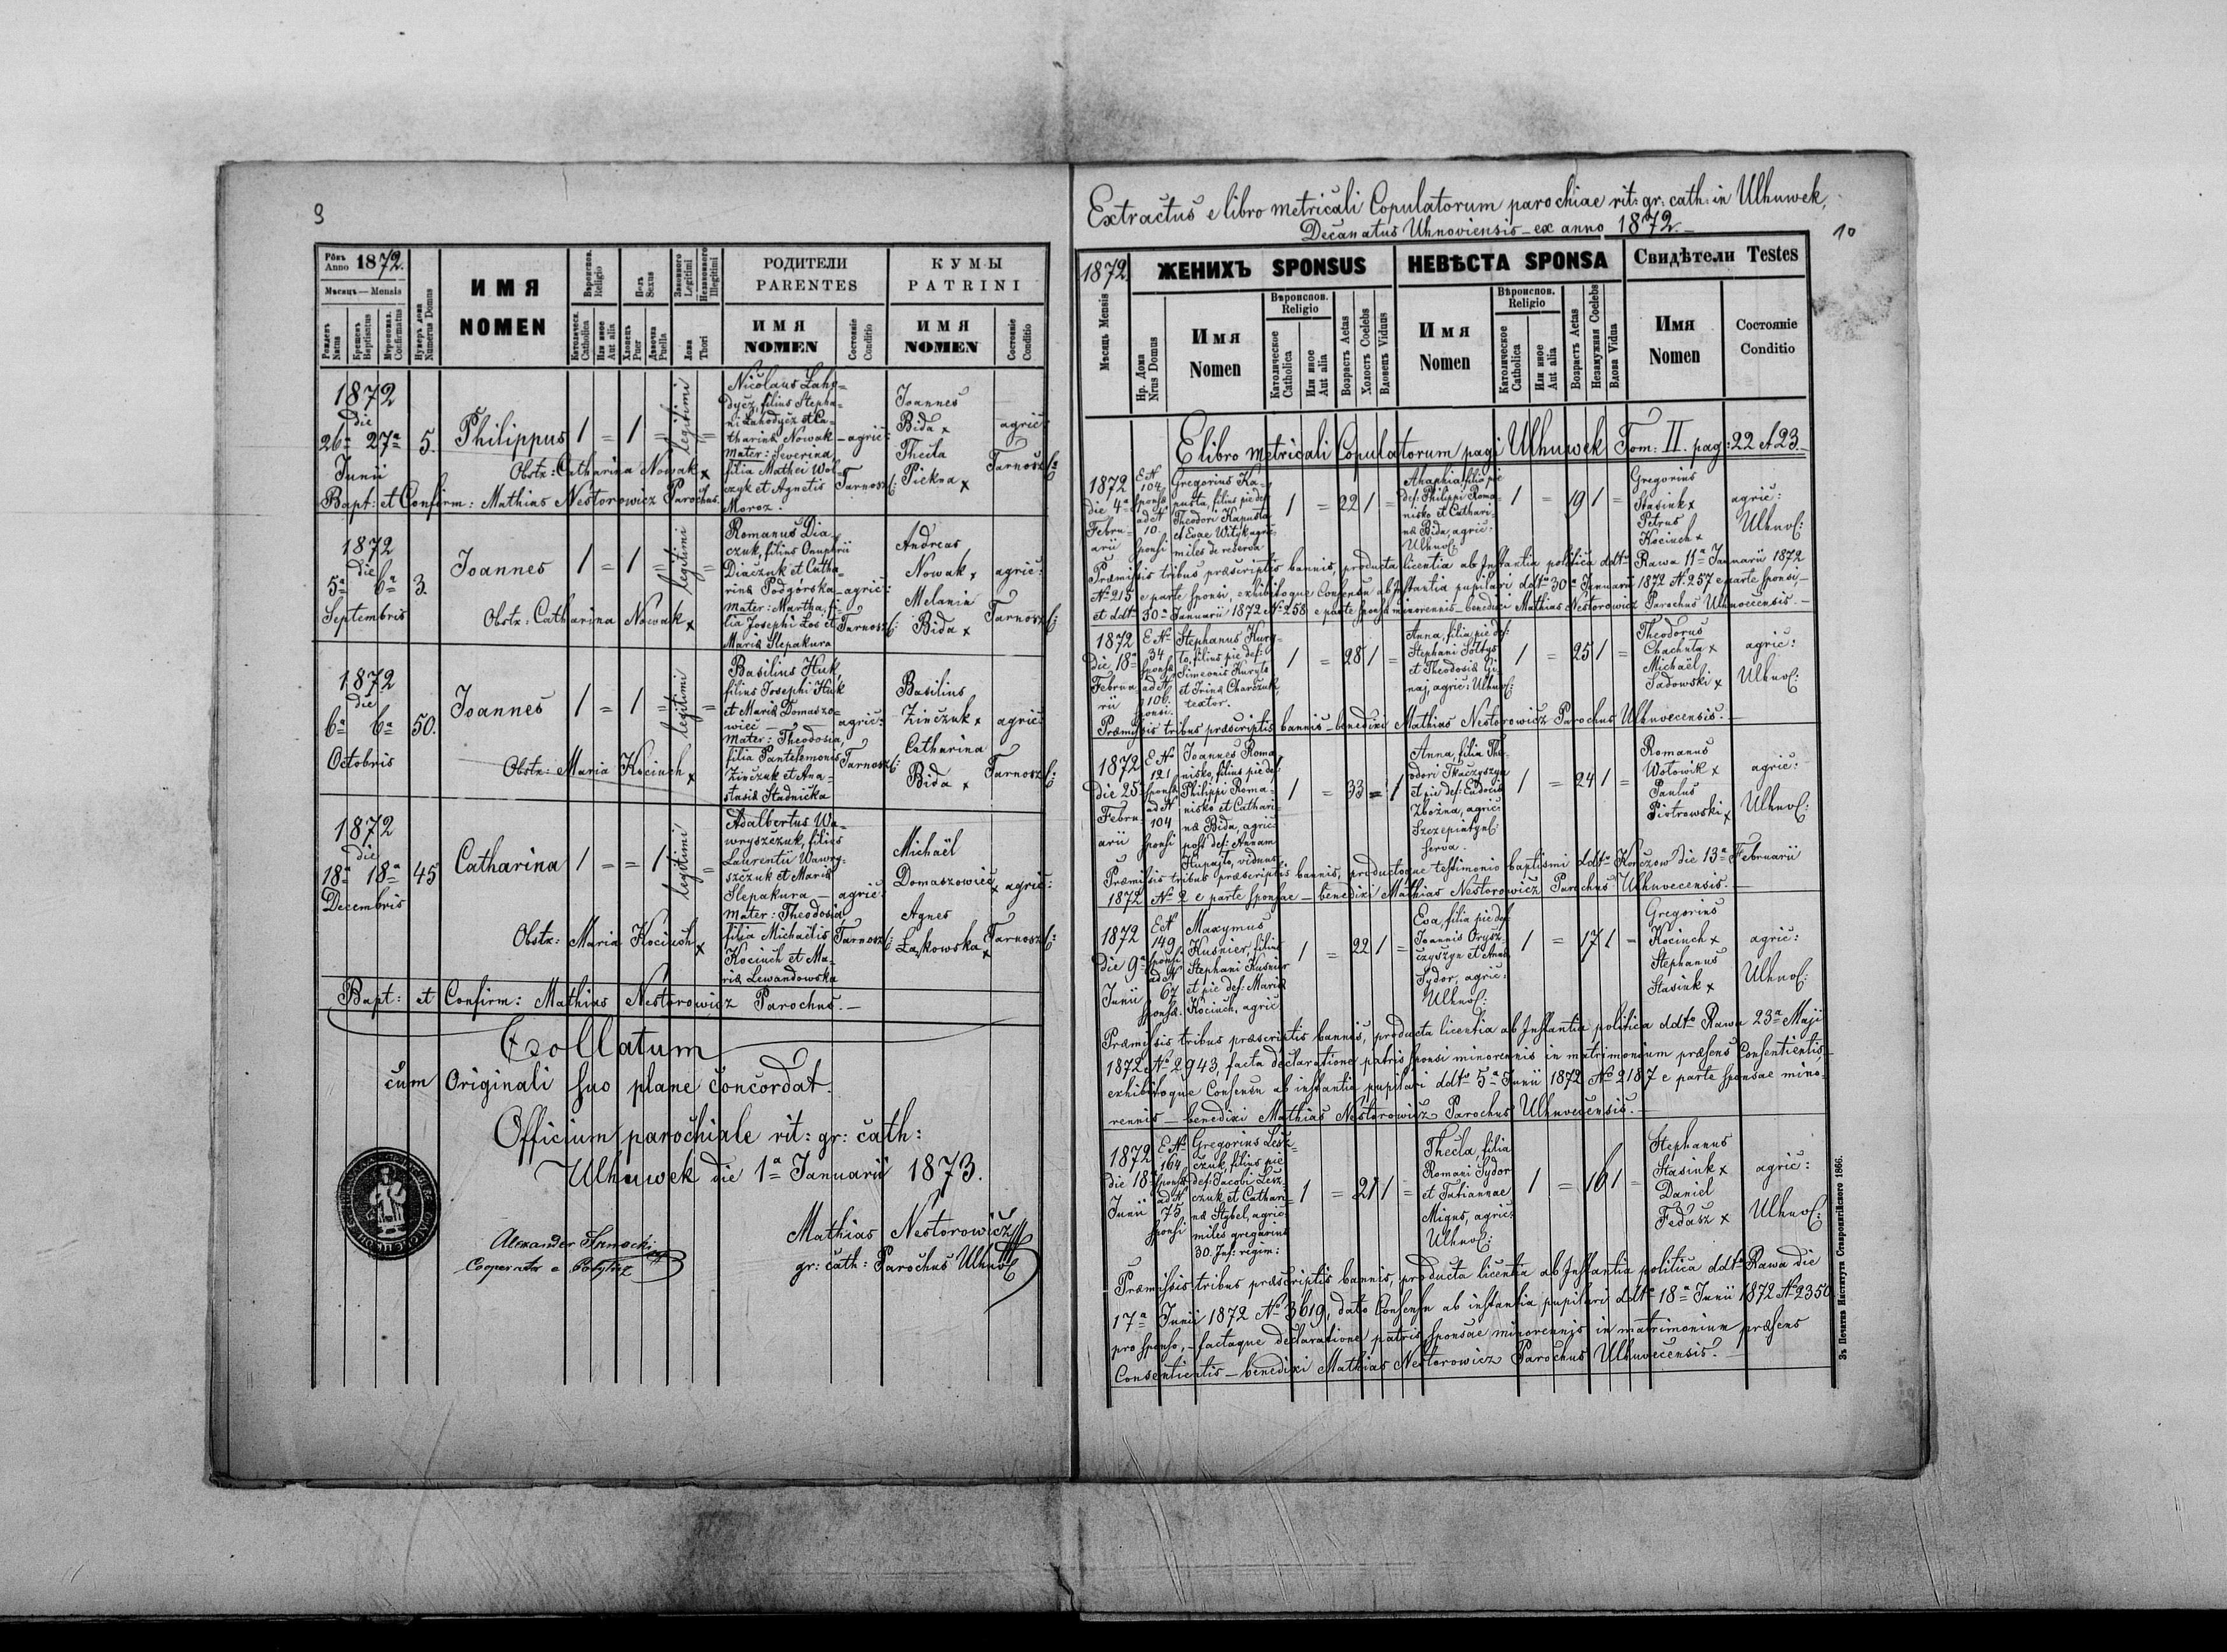 9
Рôкъ Anno 1872.
Мѣсяць — Mensis
Рожденъ Natus
Крещенъ Baptisatus
Муропомаз. Confirmatus
Нумеръ дома Numerus Domus
ИМЯ
NOMEN
Вѣроиспов. Religio
Католическ. Catholica
Или иное Aut alia
Полъ Sexus
Хлопецъ Puer
Дѣвочка Puella
Законного Legitimi
Незаконного Illegitimi
Ложа Thori
РОДИТЕЛИ
PARENTES
ИМЯ
NOMEN
Состоянiе Conditio
КУМЫ
PATRINI
ИМЯ
NOMEN
Состоянiе Conditio
1872
die
26ª 27ª
Junii
5.
Philippus
1 = 1 =
legitimi
=
Nicolaus Laho=
dycz, filius Stepha=
ni Lahodycz et Ca=
tharina Nowak – agric:
Mater: Severina
filia Mathei Wol=
czyk et Agnetis Tarnosz:
Moroz.
Joannes
Bida x
Thecla
Piekna x
agric:
Tarnosz:
Obstx: Catharina Nowak x
Bapt: et Confirm: Mathias Nestorowicz Parochus.
1872
die
5ª 6ª
Septembris
3.
Joannes
1 = 1 =
legitimi
=
Romanus Dia=
czuk, filius Onuphrii
Diaczuk et Catha=
rina Podgórska – agric:
Mater: Martha, fi=
lia Josephi Łos et Tarnosz:
Maria Slepakura
Andreas
Nowak x
Melania
Bida x
agric:
Tarnosz:
Obstx: Catharina Nowak x
1872
die
6ª 6ª
Octobris
50.
Joannes
1 = 1 =
legitimi
=
Basilius Huk,
filius Josephi Huk
et Maria Domaszo=
wiec – agric:
Mater: Theodosia,
filia Pantelemonis Tarnosz:
Zinczuk et Ana=
stasia Stadnicka
Basilius
Zinczuk x
Catharina
Bida x
agric:
Tarnosz:
Obstx: Maria Kociuch x
1872
die
18ª 18ª
Decembris
45
Catharina
1 = = 1
legitimi
=
Adalbertus Wa=
wryszczuk, filius
Laurentii Wawry=
szczuk et Maria
Slepakura – agric:
Mater: Theodosia,
filia Michaëlis Tarnosz:
Kociuch et Ma=
ria Lewandowska
Michaël
Domaszowiec x
Agnes
Łąkowska x
agric:
Tarnosz:
Obstx: Maria Kociuch x
Bapt: et Confirm: Mathias Nestorowicz Parochus. –
Collatum
cum Originali suo plane concordat.
Officium parochiale rit: gr: cath:
Ulhuwek die 1ª Januarii 1873.
Mathias Nestorowicz
gr: cath: Parochus Ulhuv:
Alexander Sanocki
Cooperator e
10
Extractus e libro metricali Copulatorum parochiae rit: gr: cath: in Ulhuwek,
Decanatus Uhnoviensis – ex anno 1872. –
1872.
Мѣсяць Mensis
ЖЕНИХЪ SPONSUS
Нр. Дома Nrus Domus
Имя
Nomen
Вѣроиспов. Religio
Католическое Catholica
Или иное Aut alia
Возрастъ Aetas
Холостъ Coelebs
Вдовецъ Viduus
НЕВѢСТА SPONSA
Имя
Nomen
Вѣроиспов. Religio
Католическое Catholica
Или иное Aut alia
Возрастъ Aetas
Незамужная Coelebs
Вдова Vidua
Свидѣтели Testes
Имя
Nomen
Состоянiе
Conditio
E libro metricali Copulatorum pagi Ulhuwek Tom: II. pag: 22 et 23. –
1872
die 4ª
Febru=
arii
E Nº
104
sponsæ
ad Nº
10.
sponsi
Gregorius Ka=
pusta, filius pie def:
Theodori Kapusta
et Evae Wityk, agric:
miles de reserva
1 = 22 1 =
Ahaphia, filia pie
def: Philippi Roma=
nisko et Cathari=
na Bida, agric:
Ulhuv:
1 = 19 1 =
Gregorius
Stasiuk x
Petrus
Kociuch x
agric:
Ulhuv:
Præmissis tribus præscriptis bannis, producta licentia ab Instantia politica ddtº Rawa 11ª Januarii 1872
Nº 215 e parte sponsi, exhibitoque Consensu ab Instantia pupilari ddtº 30ª Januarii 1872 Nº 257 e parte sponsi –
et ddtº 30ª Januarii 1872 Nº 258 e parte sponsæ minorennis – benedixi Mathias Nestorowicz Parochus Ulhuvecensis. –
1872
die 18ª
Februa=
rii
E Nº
34
sponsæ
ad Nº
106.
sponsi.
Stephanus Kury=
to, filius pie def:
Simeonis Kuryto
et Irina Charczuk,
textor.
1 = 28 1 =
Anna, filia pie def:
Stephani Soltys
et Theodosia Gi=
naj, agric: Ulhuv:
1 = 25 1 =
Theodorus
Chachuta x
Michaël
Sadowski x
agric:
Ulhuv:
Præmissis tribus præscriptis bannis – benedixi Mathias Nestorowicz Parochus Ulhuvecensis. –
1872
die 25ª
Febru=
arii
E Nº
121
sponsæ
ad Nº
104
sponsi
Joannes Roma=
nisko, filius pie def:
Philippi Roma=
nisko et Cathari=
na Bida, agric:
post def: Annam
Kupajto, viduus
1 = 33 = 1
Anna, filia The=
odori Tkaczyszyn
et pie def: Eudocia
Zbożna, agric:
serva.
1 = 24 1 =
Romanus
Wołowik x
Paulus
Piotrowski x
agric:
Ulhuv:
Præmissis tribus præscriptis bannis, productoque testimonio baptismi ddtº Korczow die 13ª Februarii
1872 Nº 2 e parte sponsae – benedixi Mathias Nestorowicz Parochus Ulhuvecensis. –
1872
die 9ª
Junii
E Nº
149
sponsi
ad Nº
67
sponsæ.
Maxymus
Kusnier, filius
Stephani Kusnier
et pie def: Maria
Kociuch, agric:
1 = 22 1 =
Eva, filia pie def:
Joannis Orysz=
czyszyn et Anna
Sydor, agric:
Ulhuv:
1 = 17 1 =
Gregorius
Kociuch x
Stephanus
Stasiuk x
agric:
Ulhuv:
Præmissis tribus præscriptis bannis, producta licentia ab Instantia politica ddtº Rawa 23ª Maji
1872 Nº 2943, facta declaratione patris sponsi minorennis in matrimonium præsens Consentientis,
exhibitoque Consensu ab instantia pupilari ddtº 5ª Junii 1872 Nº 2187 e parte sponsae mino=
rennis – benedixi Mathias Nestorowicz Parochus Ulhuvecensis. –
1872
die 18ª
Junii
E Nº
164
sponsæ
ad Nº
75
sponsi
Gregorius Lesz=
czuk, filius pie
def: Jacobi Lesz=
czuk et Cathari=
na Stybel, agric:
miles gregarius
30. Inf: regim:
1 = 21 1 =
Thecla, filia
Romani Sydor
et Tatiannae
Migus, agric:
Ulhuv:
1 = 16 1 =
Stephanus
Stasiuk x
Daniel
Fedasz x
agric:
Ulhuv:
Præmissis tribus præscriptis bannis, producta licentia ab Instantia politica ddtº Rawa die
17ª Junii 1872 Nº 3619, dato Consensu ab instantia pupilari ddtº 18ª Junii 1872 Nº 2350
pro sponso, – factaque declaratione patris sponsae minorennis in matrimonium præsens
Consentientis – benedixi Mathias Nestorowicz Parochus Ulhuvecensis. –
Зъ Печатнѣ Института Ставропигiйского 1866.